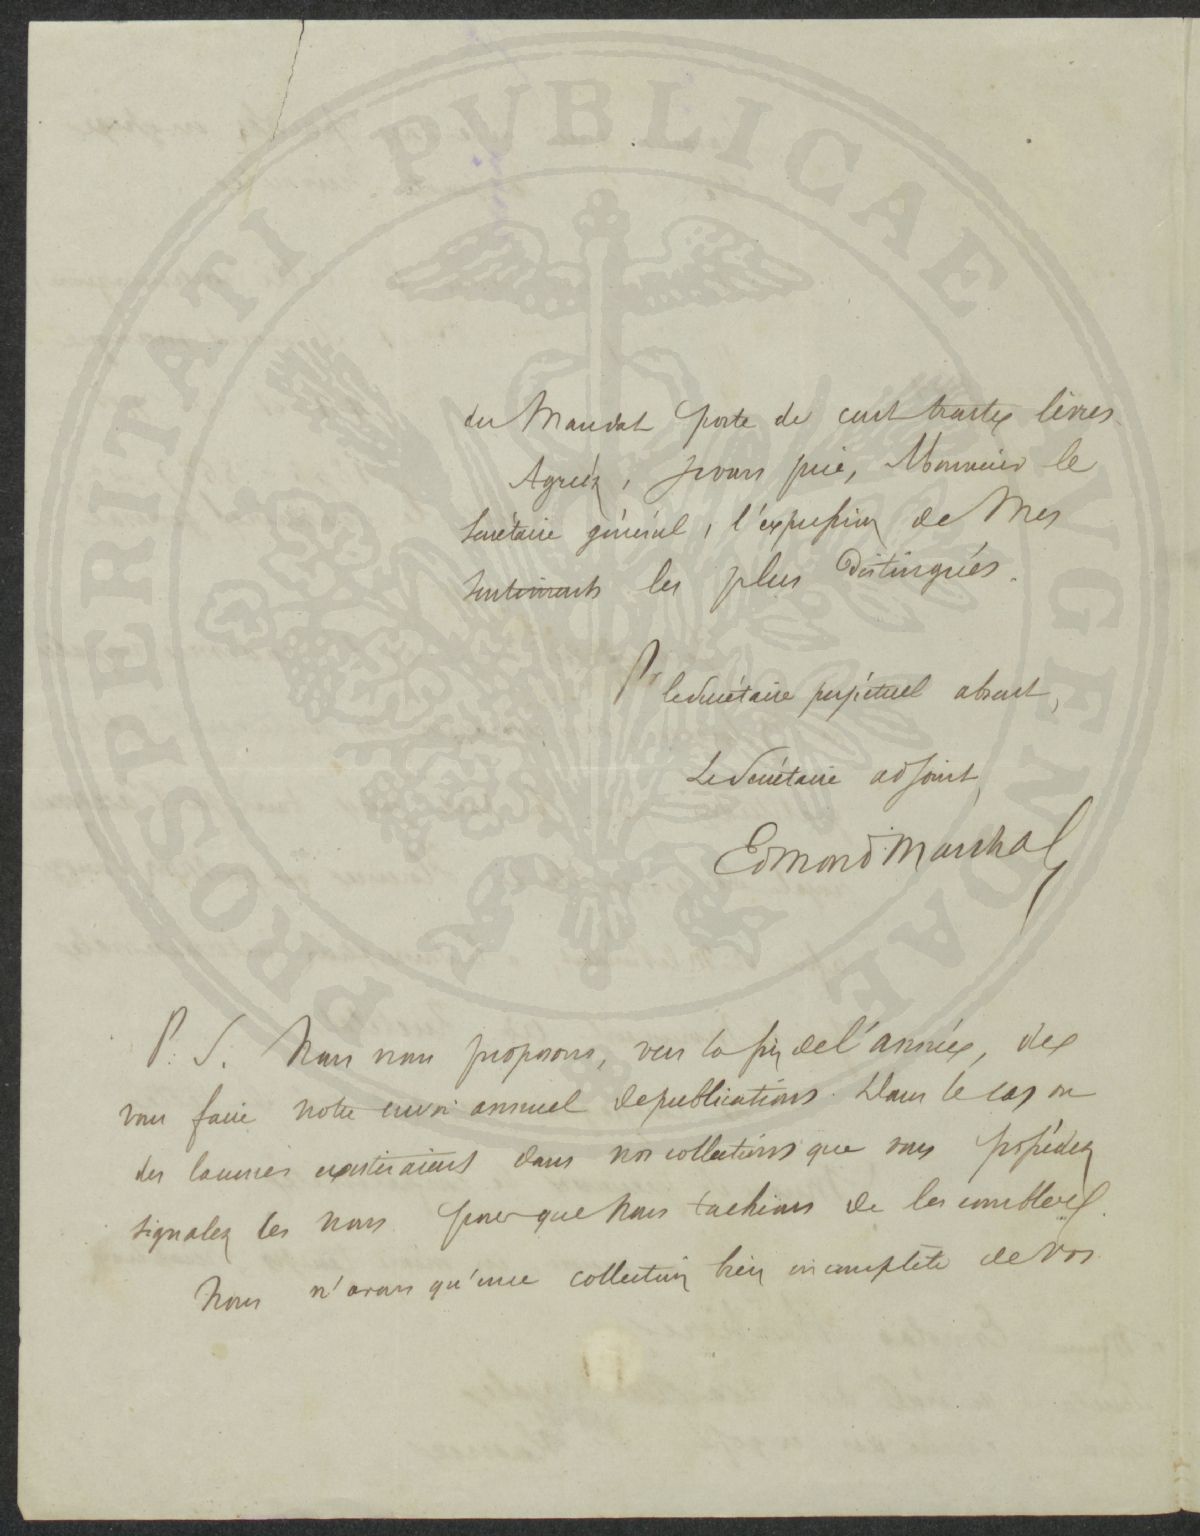 PROSPERITATI PVBLICAE AVGENDAE
du Mandat poste de cent trente livres.
Agréez, je vous prie, Monsieur le
Secrétaire général, l'expression de Mes
sentiments les plus Distingués.
Pr le Secrétaire perpétuel absent,
Le Secrétaire adjoint
Edmond Marchal
P. S. Nous nous proposons, vers la fin de l'année, de
vous faire notre envoi annuel de publications. Dans le cas ou
des lacunes existeraient dans nos collections que vous possédez
signalez les nous pour que nous tachions de les combler.
Nous n'avons qu'une collection bien incomplète de vos